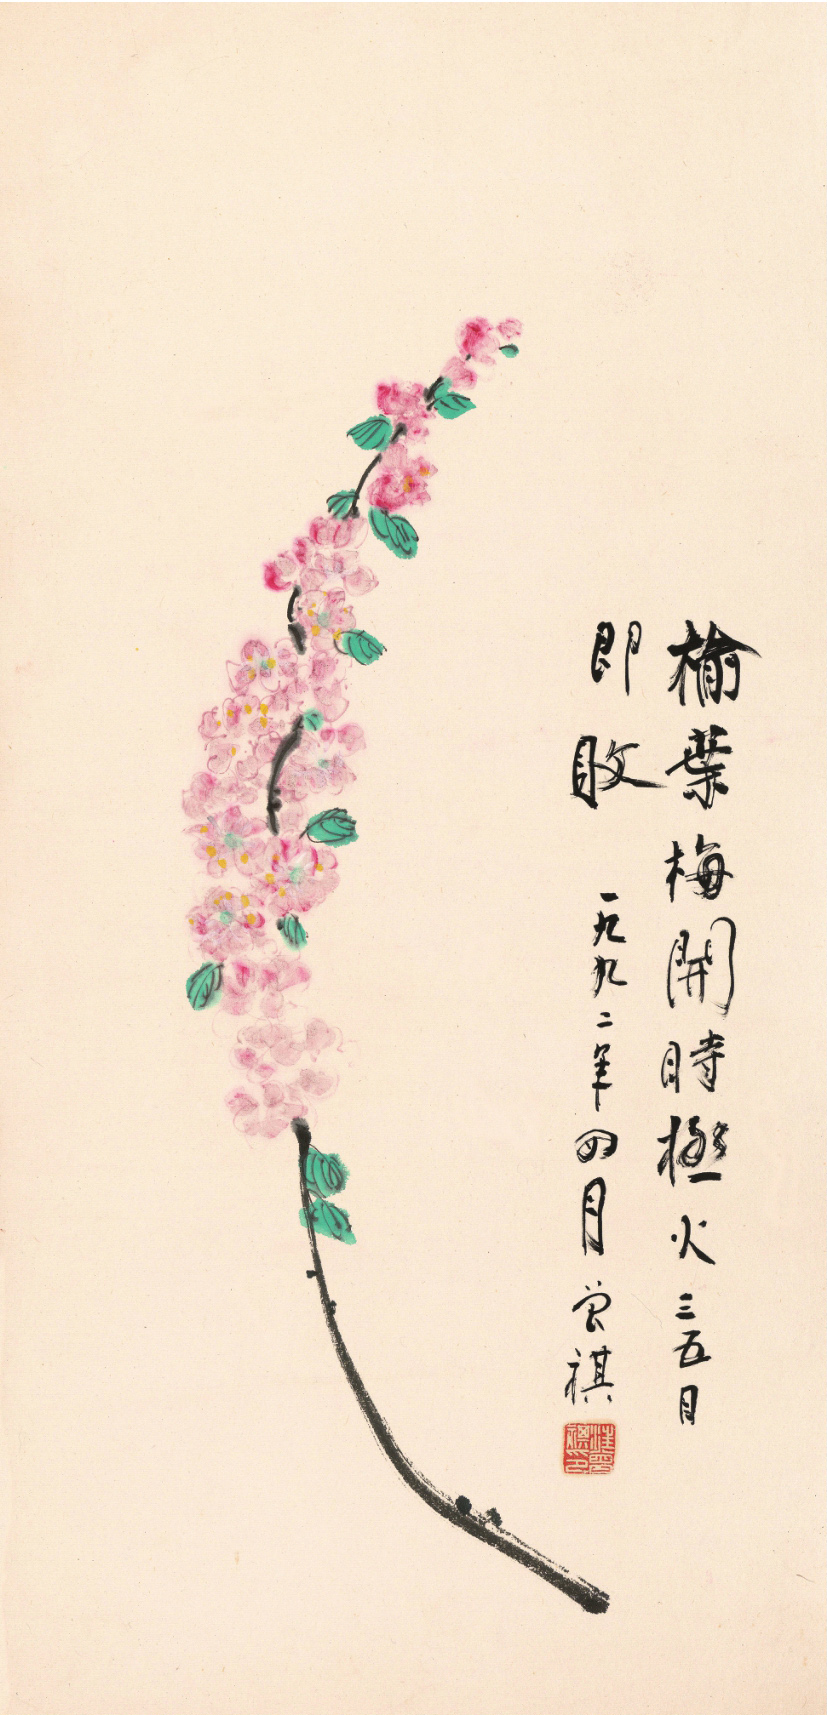 榆葉梅開時極火三五日
即敗 一九九二年四月 曾祺
汪曾祺印